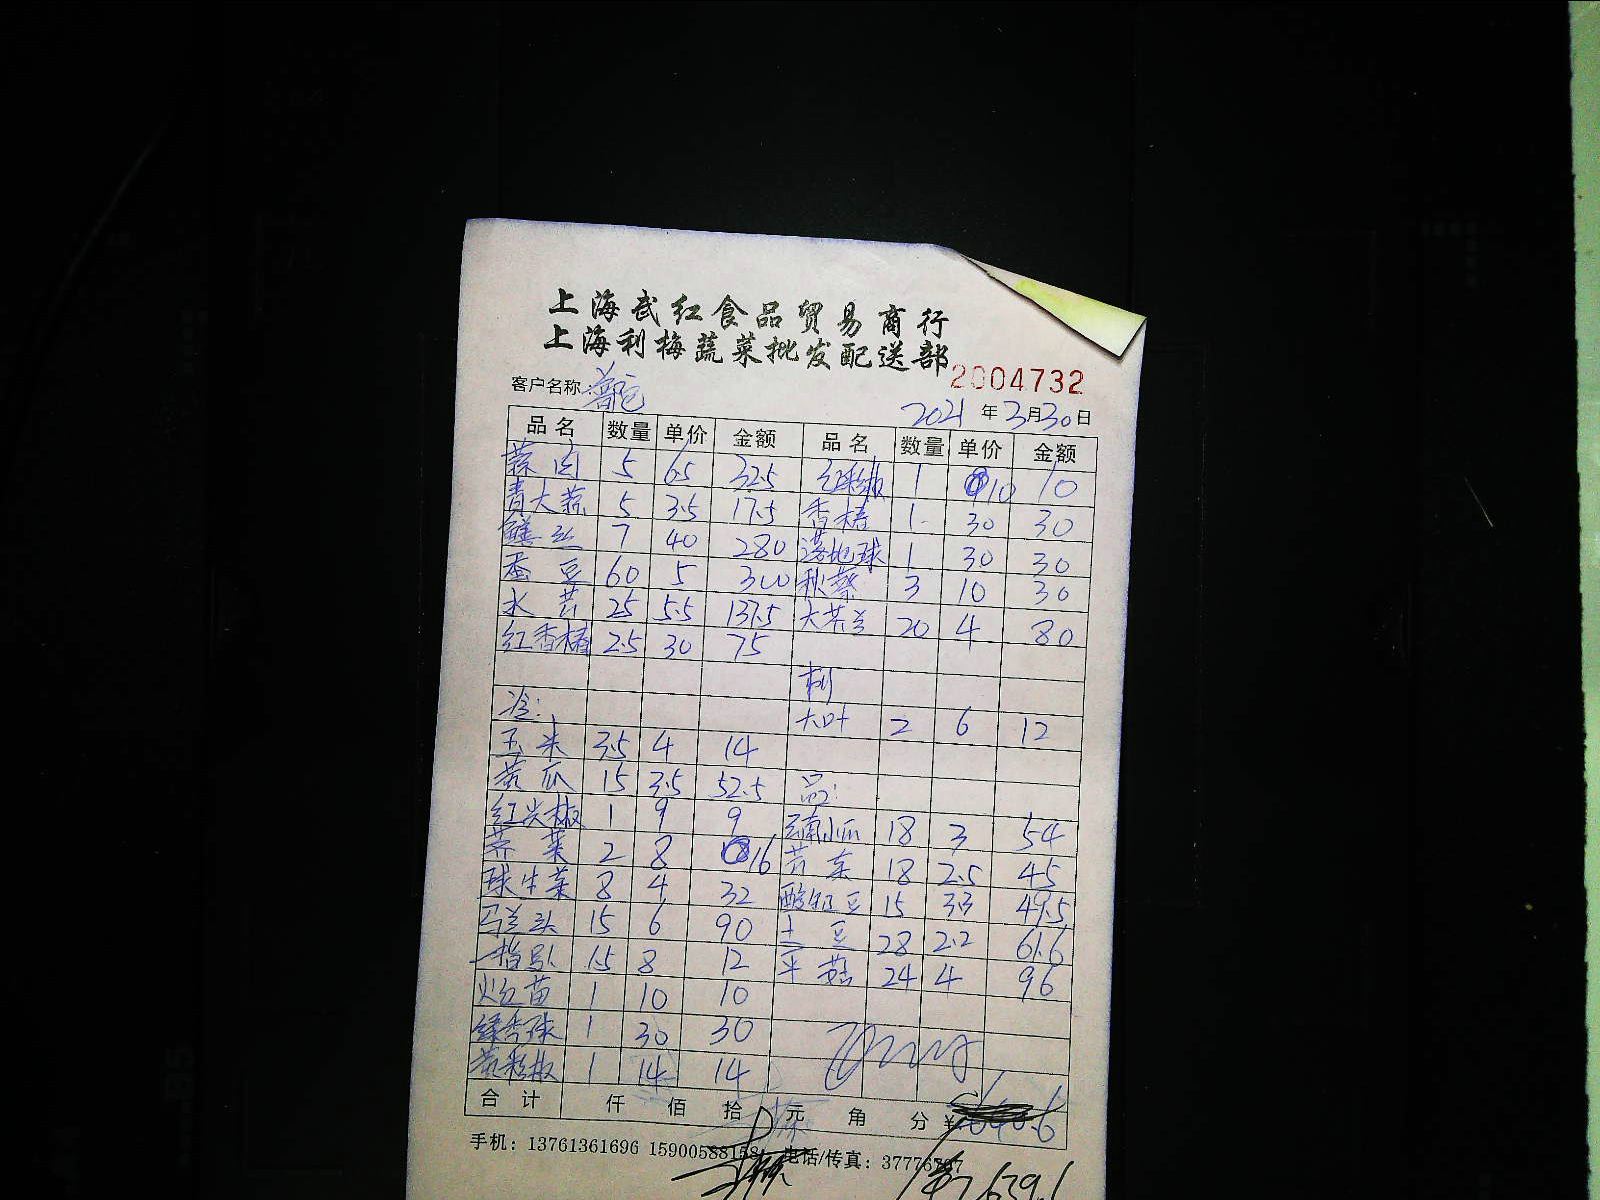 上海武红食品贸易商行
上海利梅蔬菜批发配送部
2004732
客户名称:
2021年3月30日
品名 数量 单价 金额 品名 数量 单价 金额
蒜肉 5 6.5 32.5 红彩椒 1 10 10
青大蒜 5 3.5 17.5 香椿 1 30 30
鳝丝 7 40 280 落地球 1 30 30
蚕豆 60 5 300 秋葵 3 10 30
水芹 25 5.5 137.5 大芥兰 20 4 80
红香椿 2.5 30 75
冷: 大叶 2 6 12
玉米 3.5 4 14
苦瓜 15 3.5 52.5
红尖椒 1 9 9 小瓜 18 3 54
荠菜 2 8 16 芹菜 18 2.5 45
球生菜 8 4 32 豆 15 3.3 49.5
马兰头 15 6 90 土豆 28 2.2 61.6
1.5 8 12 平菇 24 4 96
火红苗 1 10 10
1 30 30
黄彩椒 1 14 14
合计 仟 佰 拾 元 角 分 ¥
手机: 13761361696 15900588158 电话/传真: 37776767
1639.1